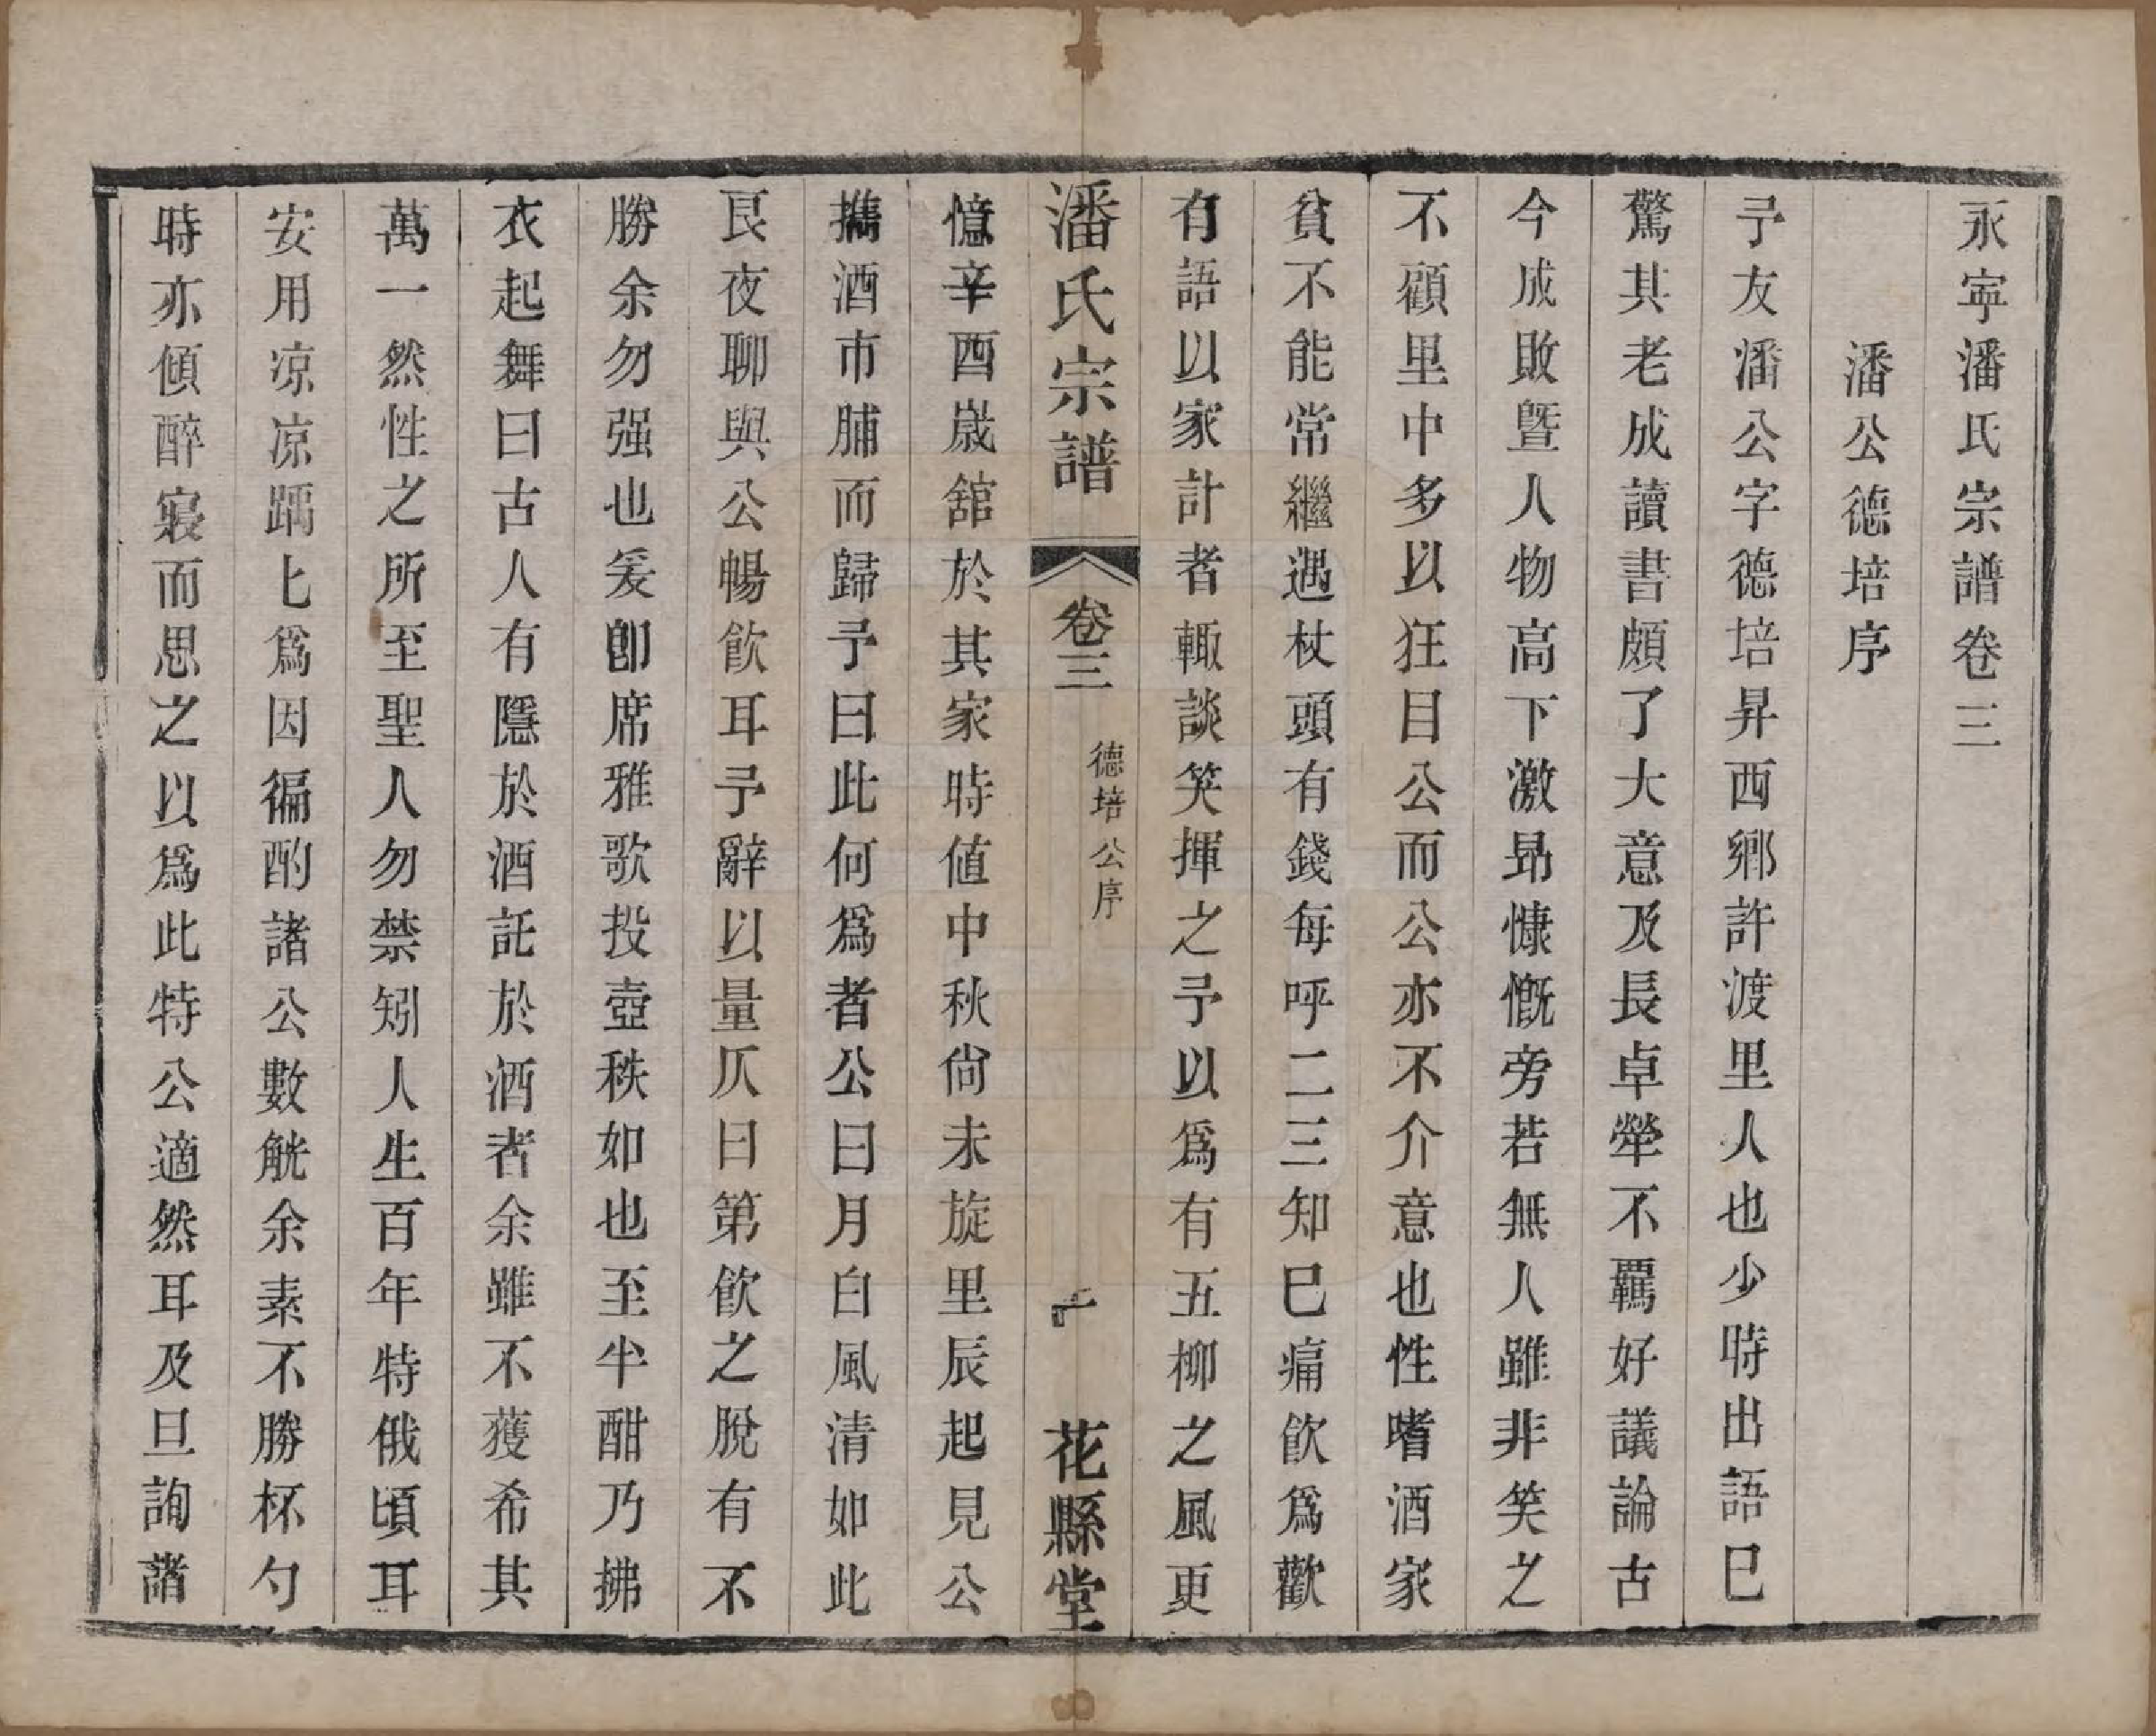 永寧潘氏宗譜卷三
潘公德培序
予友潘公字德培昇西鄉許渡里人也少時出語巳
驚其老成讀書頗了大意及長卓犖不羈好議論古
今成敗曁人物高下激昻慷慨旁若無人雖非笑之
不顧里中多以狂目公而公亦不介意也性嗜酒家
貧不能常繼遇杖頭有錢每呼二三知巳痛飮爲歡
有語以家計者輙談笑揮之予以爲有五柳之風更
潘氏宗譜 卷三 德培公序 一 花縣堂
憶辛酉嵗舘於其家時値中秋尙未旋里辰起見公
攜酒市脯而歸予曰此何爲者公曰月白風清如此
良夜聊與公暢飮耳予辭以量仄曰第飮之脫有不
勝余勿强也爰卽席雅歌投壺秩如也至半酣乃拂
衣起舞曰古人有隱於酒託於酒者余雖不獲希其
萬一然性之所至聖人勿禁矧人生百年特俄頃耳
安用凉凉踽匕爲因徧酌諸公數觥余素不勝杯勺
時亦傾醉寢而思之以爲此特公適然耳及旦詢諸